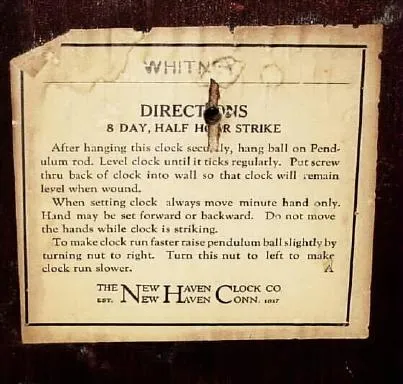 WHITN
DIRECT NS
8 DAY, HALF H R STRIKE
After hanging this clock secu ly, hang ball on Pend-
ulum rod. Level clock until it ticks regularly. Put screw
thru back of clock into wall so that clock will remain
level when wound.
When setting clock always move minute hand only.
Hand may be set forward or backward. Do not move
the hands while clock is striking.
To make clock run faster raise pendulum ball slightly by
turning nut to right. Turn this nut to left to make
clock run slower.
A
THE NEW HAVEN CLOCK CO
EST. NEW HAVEN CONN. 1817